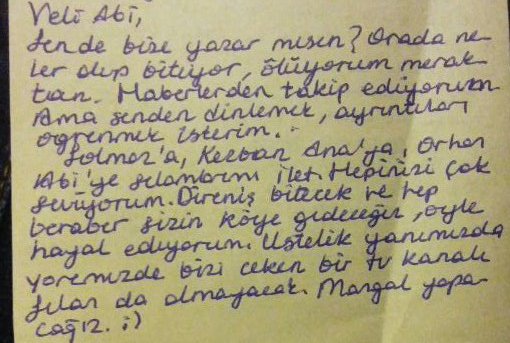 Veli Abi,
Sen de bize yazar mısın? Orada ne-
ler olup bitiyor, ölüyorum merak-
tan. Haberlerden takip ediyorum
Ama senden dinlemek, ayrıntıları
öğrenmek isterim.
Solmaz'a, Kezban Ana'ya, Orhan
Abi'ye selamlarımı ilet. Hepinizi çok
seviyorum. Direniş bitecek ve hep
beraber sizin köye gideceğiz, öyle
hayal ediyorum. Üstelik yanımızda
yöremizde bizi çeken bir tv kanalı
filan da olmayacak. Mangal yapa-
cağız. ;)